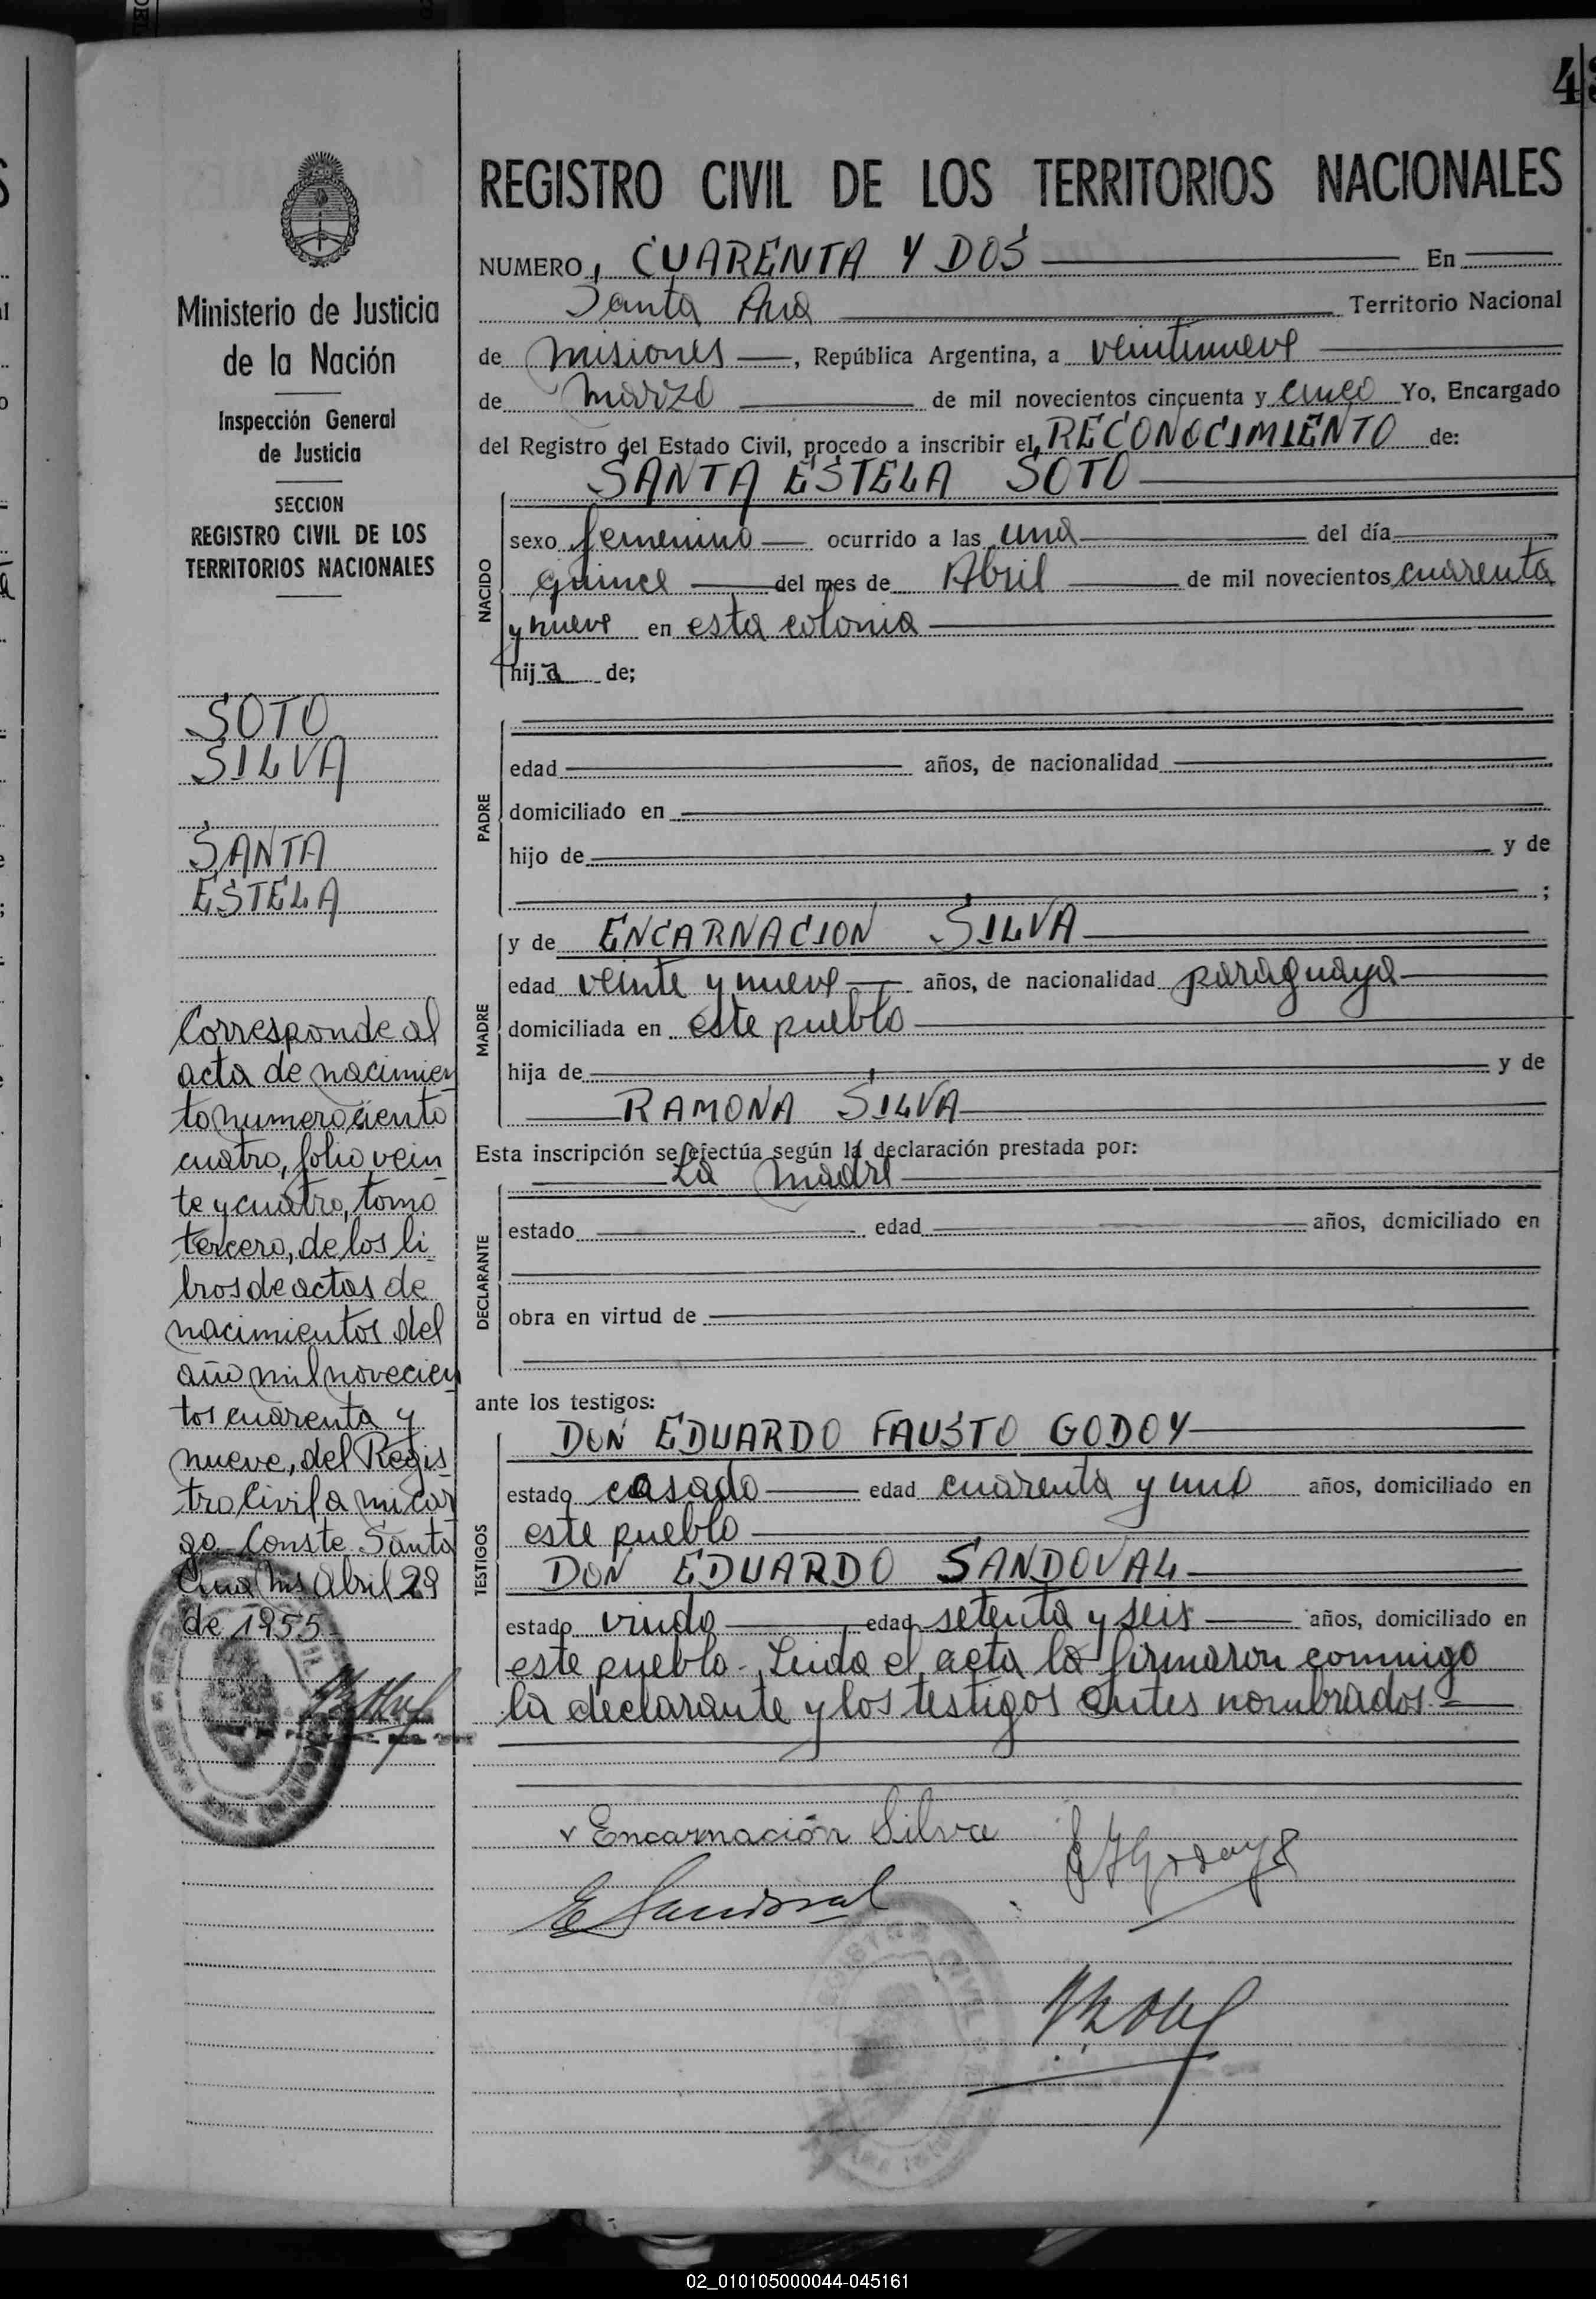 43
REGISTRO CIVIL DE LOS TERRITORIOS NACIONALES
NUMERO, CUARENTA Y DOS En
Santa Ana Territorio Nacional
de Misiones, República Argentina, a veintinueve
de Marzo de mil novecientos cincuenta y cinco Yo, Encargado
del Registro del Estado Civil, procedo a inscribir el RECONOCIMIENTO de:
SANTA ESTELA SOTO
NACIDO
sexo femenino ocurrido a las una del día
quince del mes de Abril de mil novecientos cuarenta
y nueve en esta colonia
hija de;
PADRE
edad años, de nacionalidad
domiciliado en
hijo de y de
;
MADRE
y de ENCARNACION SILVA
edad veinte y nueve años, de nacionalidad paraguaya
domiciliada en este pueblo
hija de y de
RAMONA SILVA
Esta inscripción se efectúa según la declaración prestada por:
La madre
DECLARANTE
estado edad años, domiciliado en
obra en virtud de
ante los testigos:
TESTIGOS
DON EDUARDO FAUSTO GODOY
estado casado edad cuarenta y uno años, domiciliado en
este pueblo
DON EDUARDO SANDOVAL
estado viudo edad setenta y seis años, domiciliado en
este pueblo - Leida el acta la firmaron conmigo
la declarante y los testigos antes nombrados.=
Encarnación Silva
E Sandoval
Ministerio de Justicia
de la Nación
Inspección General
de Justicia
SECCION
REGISTRO CIVIL DE LOS
TERRITORIOS NACIONALES
SOTO
SILVA
SANTA
ESTELA
Corresponde al
acta de nacimien
to numero ciento
cuatro, folio vein
te y cuatro, tomo
tercero, de los li
bros de actas de
nacimientos del
año mil novecien
tos cuarenta y
nueve, del Regis
tro Civil a mi car
go. Conste. Santa
Ana Mns Abril 29
de 1955
02_010105000044-045161